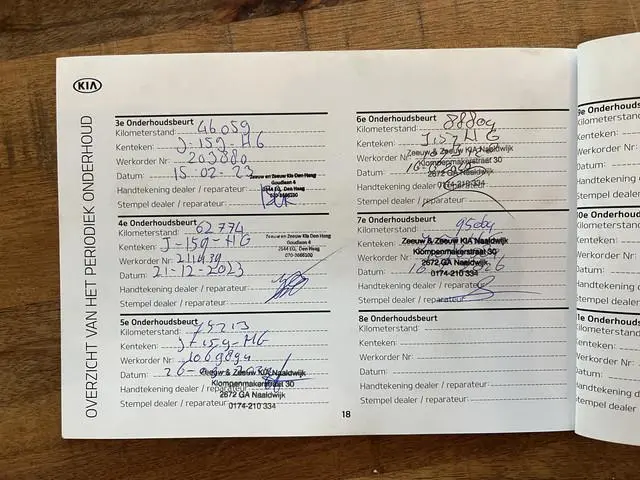 KIA
OVERZICHT VAN HET PERIODIEK ONDERHOUD
3e Onderhoudsbeurt
Kilometerstand: 46059
Kenteken: J-159-HG
Werkorder Nr: 203880
Datum: 15-02-23
Zeeuw en Zeeuw Kia Den Haag
Goudlaan 4
Handtekening dealer / reparateur:
2544 EG, Den Haag
070-3666100
Stempel dealer / reparateur:
4e Onderhoudsbeurt
Kilometerstand: 62774
Kenteken: J-159-HG
Werkorder Nr: 211939
Datum: 21-12-2023
Zeeuw en Zeeuw Kia Den Haag
Goudlaan 4
2544 EG, Den Haag
070-3666100
Handtekening dealer / reparateur:
Stempel dealer / reparateur:
5e Onderhoudsbeurt
Kilometerstand: 75213
Kenteken: J-159-HG
Werkorder Nr: 1069894
Datum: 26-
Zeeuw & Zeeuw KIA Naaldwijk
Klompenmakerstraat 30
Handtekening dealer / reparateur:
2672 GA Naaldwijk
Stempel dealer / reparateur:
0174-210 334
6e Onderhoudsbeurt
Kilometerstand: 88804
Kenteken: J159HG
Werkorder Nr:
Zeeuw & Zeeuw KIA Naaldwijk
Klompenmakerstraat 30
Datum: 16-
2672 GA Naaldwijk
0174-210 334
Handtekening dealer / reparateur:
Stempel dealer / reparateur:
7e Onderhoudsbeurt
Kilometerstand: 95604
Kenteken:
Zeeuw & Zeeuw KIA Naaldwijk
Werkorder Nr:
Klompenmakerstraat 30
2672 GA Naaldwijk
Datum:
0174-210 334
Handtekening dealer / reparateur:
Stempel dealer / reparateur:
8e Onderhoudsbeurt
Kilometerstand:
Kenteken:
Werkorder Nr:
Datum:
Handtekening dealer / reparateur:
Stempel dealer / reparateur:
18
9e Onderhoudsbeurt
Kilometerstand:
Kenteken:
Werkorder Nr:
Datum:
Handtekening d
Stempel dealer
10e Onderhoud
Kilometerstand
Kenteken:
Werkorder Nr:
Datum:
Handtekening
Stempel dealer
Onderhoud
Kilometerstand
Kenteken:
Werkorder Nr:
Datum:
Handtekening d
Stempel dealer